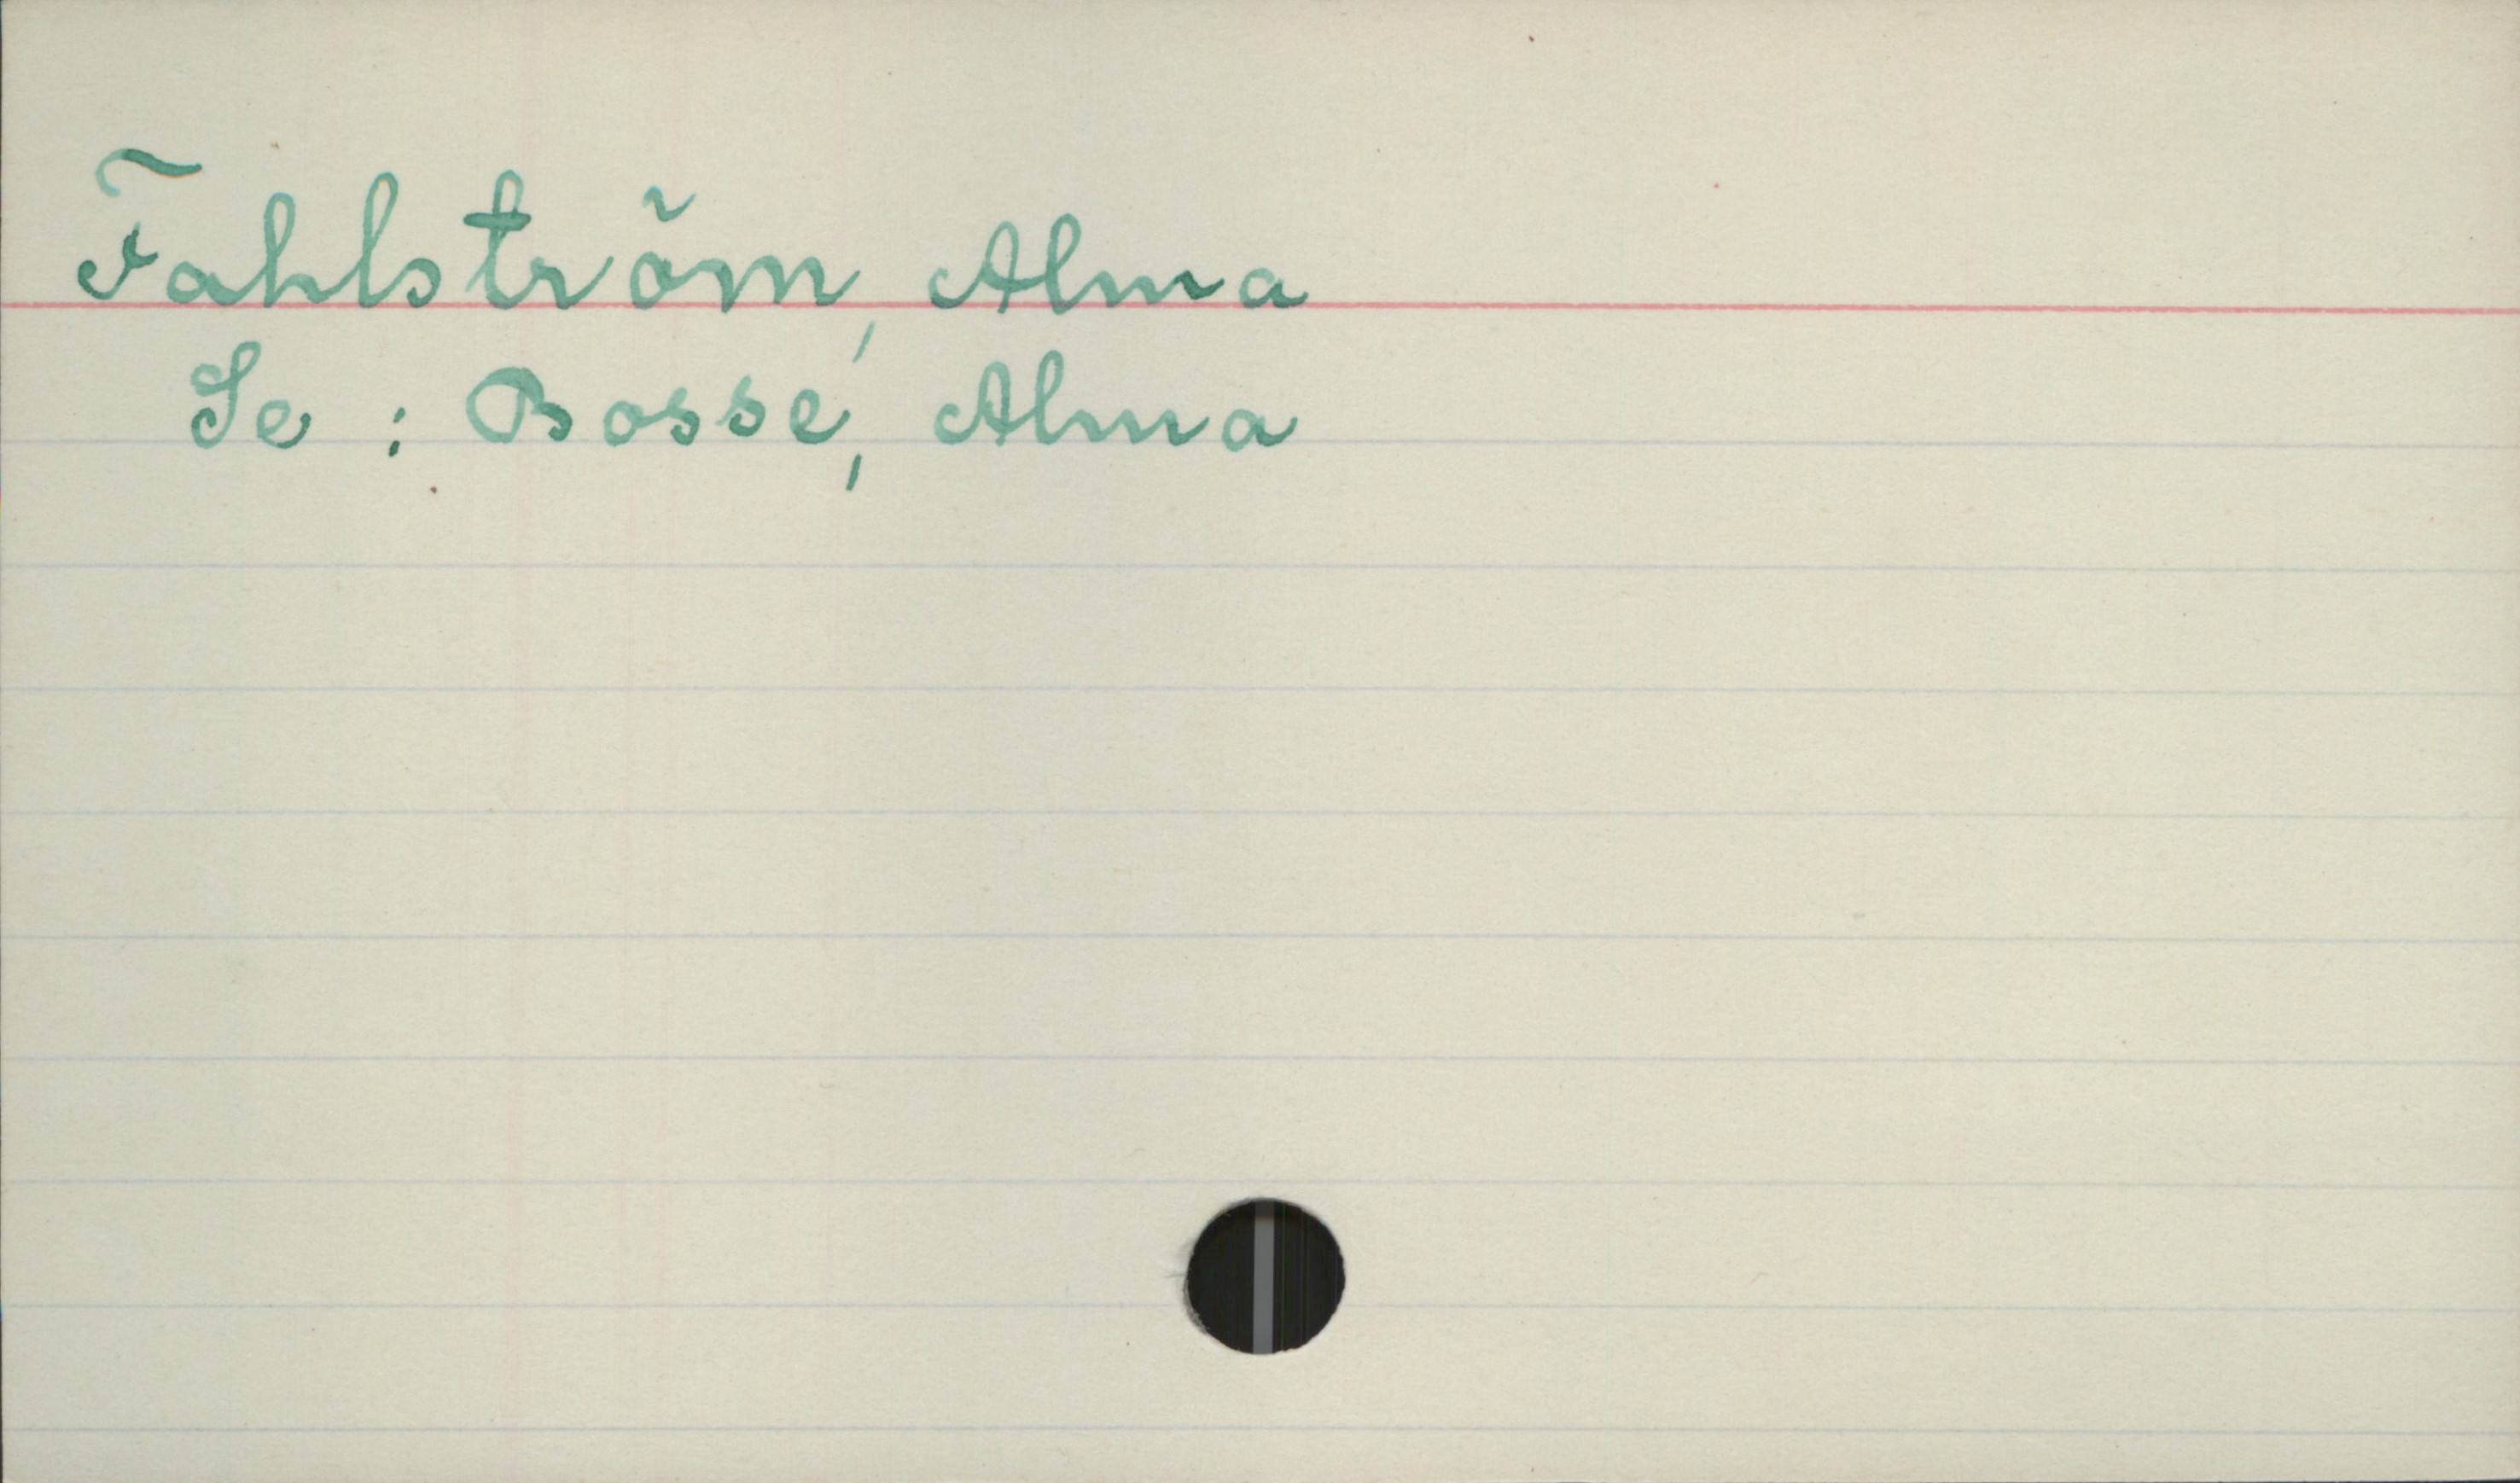 Fahlström, Alma
Se : Bosse, Alma